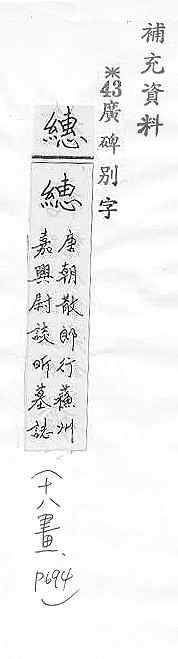 補充資料
※43廣碑别字
繐
繐
唐朝散郎行蘓州
嘉興尉談昕墓誌
(十八畫、
P694)